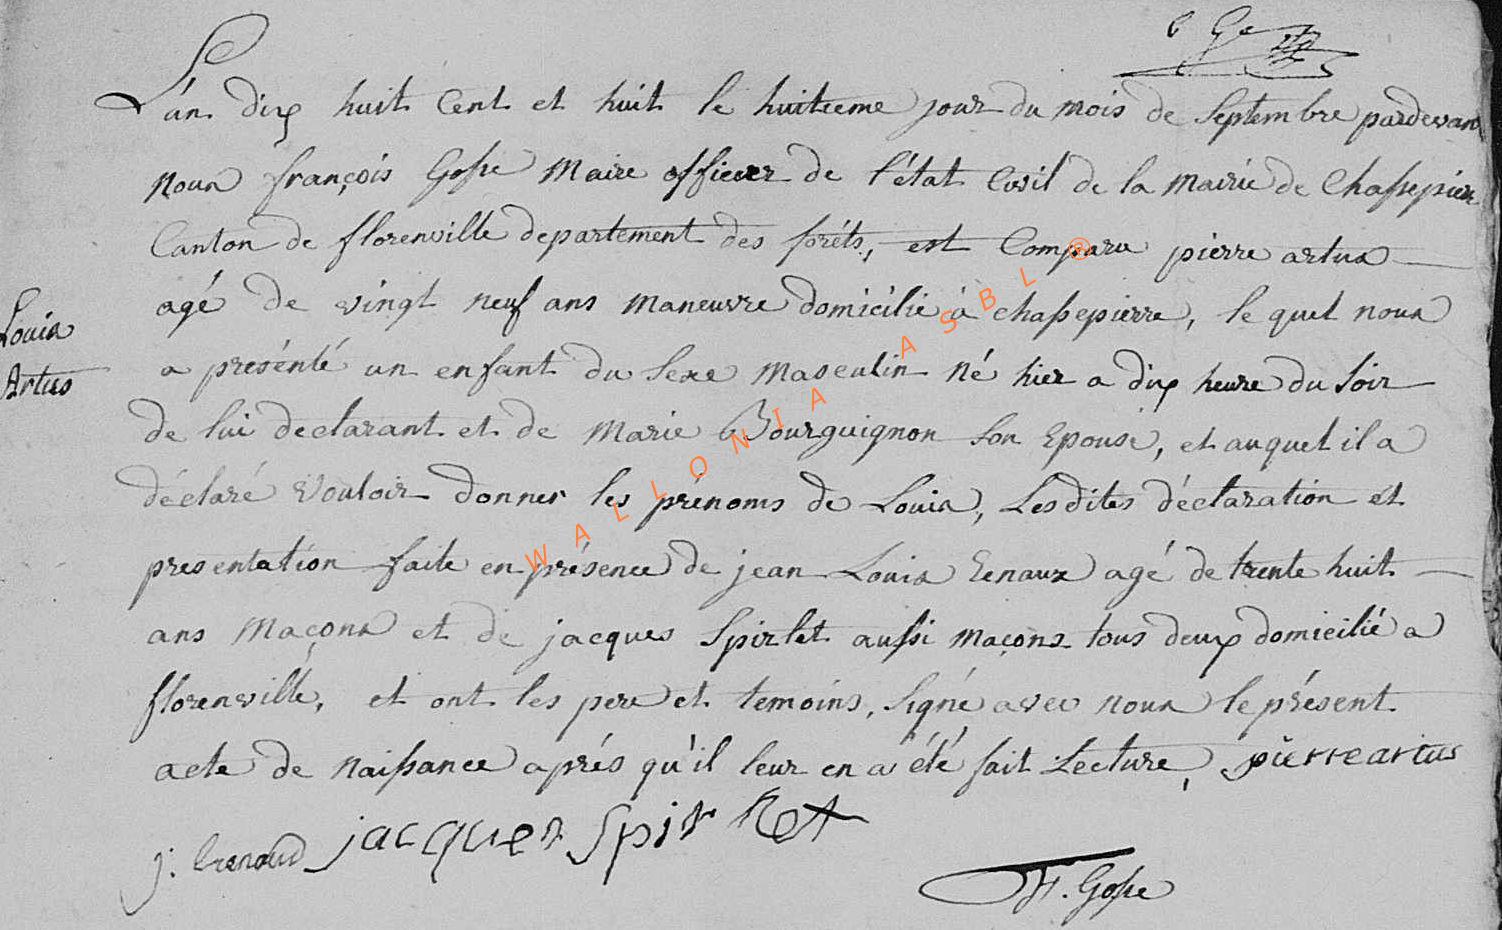 L'an dix huit Cent et huit le huitieme jour du mois de Septembre pardevant
nous françois Gosse Maire officier de l'état Civil de la Mairie de Chassepierre
Canton de florenville departement des foréts, est Comparu pierre artus
agé de vingt neuf ans maneuvre domicilié à chassepierre, le quel nous
Louis
a présénté un enfant du Sexe Masculin Né hier a dix heure du Soir
Artus
de lui declarant et de Marie Bourguignon Son Epouse, et auquel il a
déclaré Vouloir donner les prénoms de Louis, Lesdites déclaration et
presentation faite en présence de jean Louis agé de trente huit
ans Maçons et de jacques Spirlet aussi Maçons tous deux domicilié a
florenville, et ont les pere et temoins, Signé avec nous le présent
acte de Naissance aprés qu'il leur en a été fait Lecture, pierre artus
jacques Spirlet
F. Gosse
WALLONIA ASBL ®